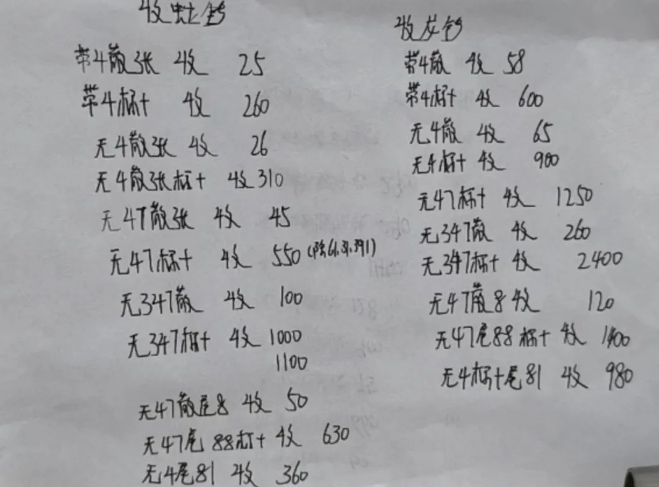 收虫钞
带4散张 收 25
带4标十 收 260
无4散张 收 26
无4散张标十 收310
无47散张 收 45
无47标十 收 550
无347散 收 100
无347标十 收 1000
1100
无47散尾8 收 50
无47尾88标十 收 630
无4尾81 收 360
收龙钞
带4散 收 58
带4标十 收 600
无4散 收 65
无4标十 收 900
无47标十 收 1250
无347散 收 260
无347标十 收 2400
无47散8收 120
无47尾88标十 收 1400
无4标十尾81 收 980